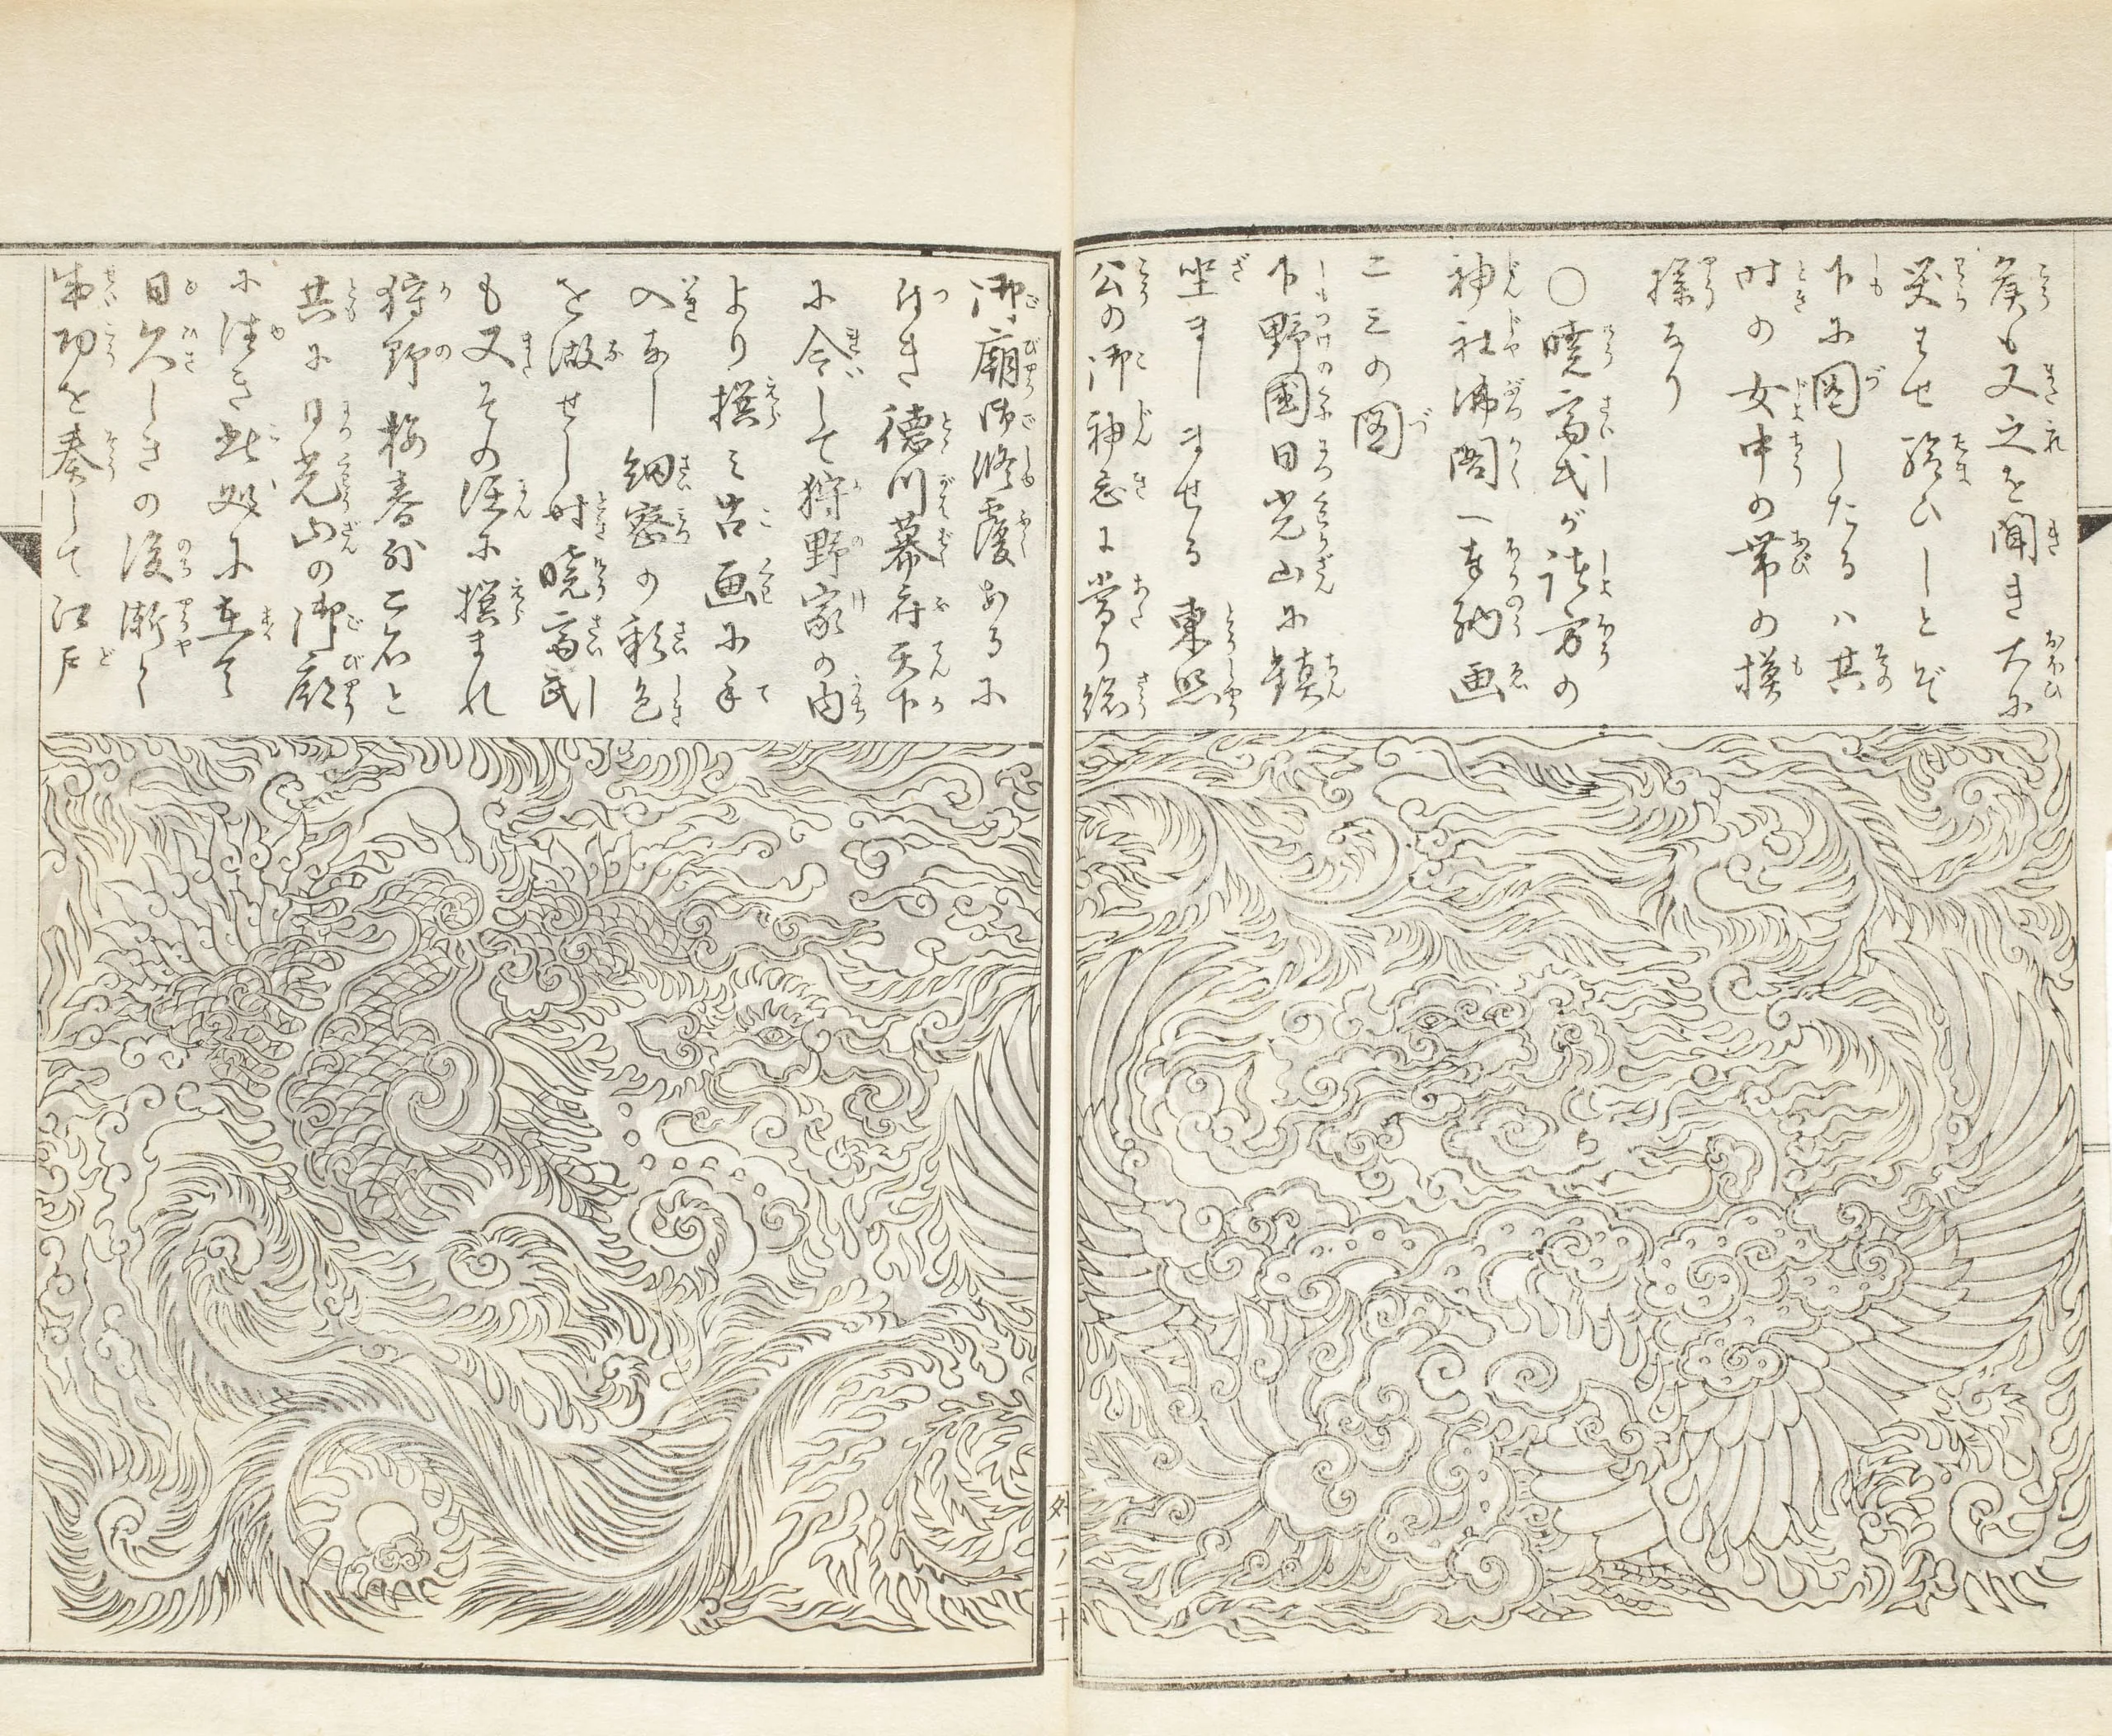 侯も又之を聞き大に
笑はせ給ひしとぞ
下に図したるハ其
時の女中の帯の模
様なり
〇暁斎氏が諸方の
神社沸閣へ奉納画
二三の図
下野国日光山に鎮
坐ましませる東照
公の御神忌に当り総
御廟御修覆あるに
付き徳川幕府天下
に令して狩野家の内
より撰み古画に手
入なし細密の彩色
を做せし時暁斎氏
も又その選に撰まれ
狩野梅春外二名と
共に日光山の御廟
に往き此処に在て
日久しきの後漸く
成功を奏して江戸
外一ノ二十